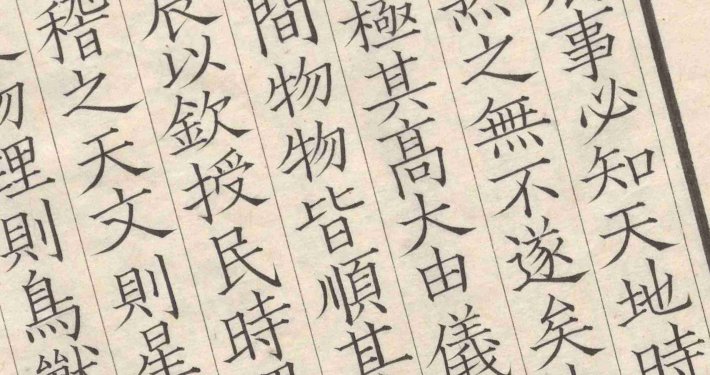 事必知天地時
然之無不遂矣
極其高大由儀
間物物皆順其
辰以欽授民時
稽之天文則星
物理則鳥獸